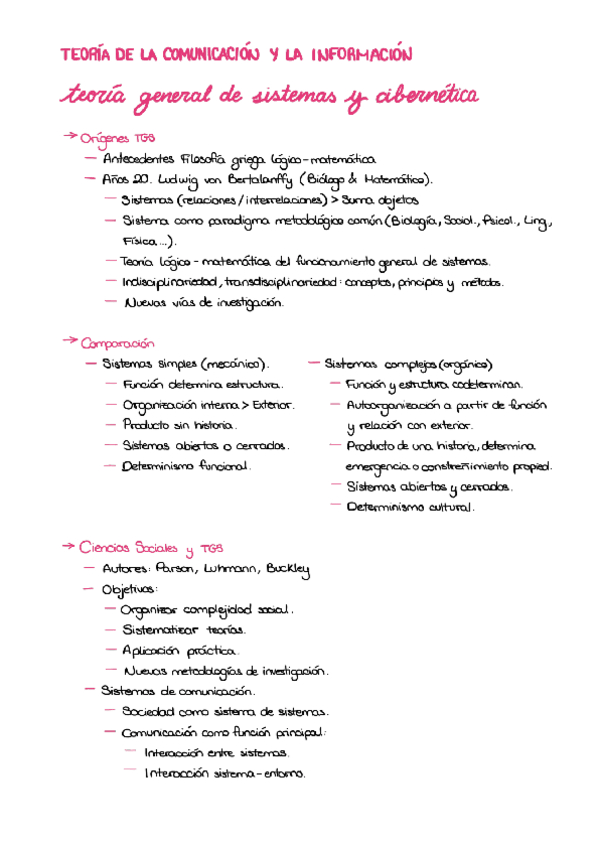 TEORÍA DE LA COMUNICACIÓN Y LA INFORMACIÓN
teoría general de sistemas y cibernética
→ Orígenes TGS
— Antecedentes Filosofía griega lógico-matemática
— Años 20. Ludwig von Bertalanffy (Biólogo & Matemático).
— Sistemas (relaciones/interrelaciones) > Suma objetos
— Sistema como paradigma metodológico común (Biología, Sociol., Psicol., Ling.,
Física...).
— Teoría lógico-matemática del funcionamiento general de sistemas.
— Indisciplinariedad, transdisciplinariedad: conceptos, principios y métodos.
— Nuevas vías de investigación.
→ Comparación
— Sistemas simples (mecánico).
— Función determina estructura.
— Organización interna > Exterior.
— Producto sin historia.
— Sistemas abiertos o cerrados.
— Determinismo funcional.
— Sistemas complejos (orgánico)
— Función y estructura codeterminan.
— Autoorganización a partir de función
y relación con exterior.
— Producto de una historia, determina
emergencia o constreñimiento propied.
— Sistemas abiertos y cerrados.
— Determinismo cultural.
→ Ciencias Sociales y TGS
— Autores: Parson, Luhmann, Buckley
— Objetivos:
— Organizar complejidad social.
— Sistematizar teorías.
— Aplicación práctica.
— Nuevas metodologías de investigación.
— Sistemas de comunicación.
— Sociedad como sistema de sistemas.
— Comunicación como función principal:
— Interacción entre sistemas.
— Interacción sistema-entorno.